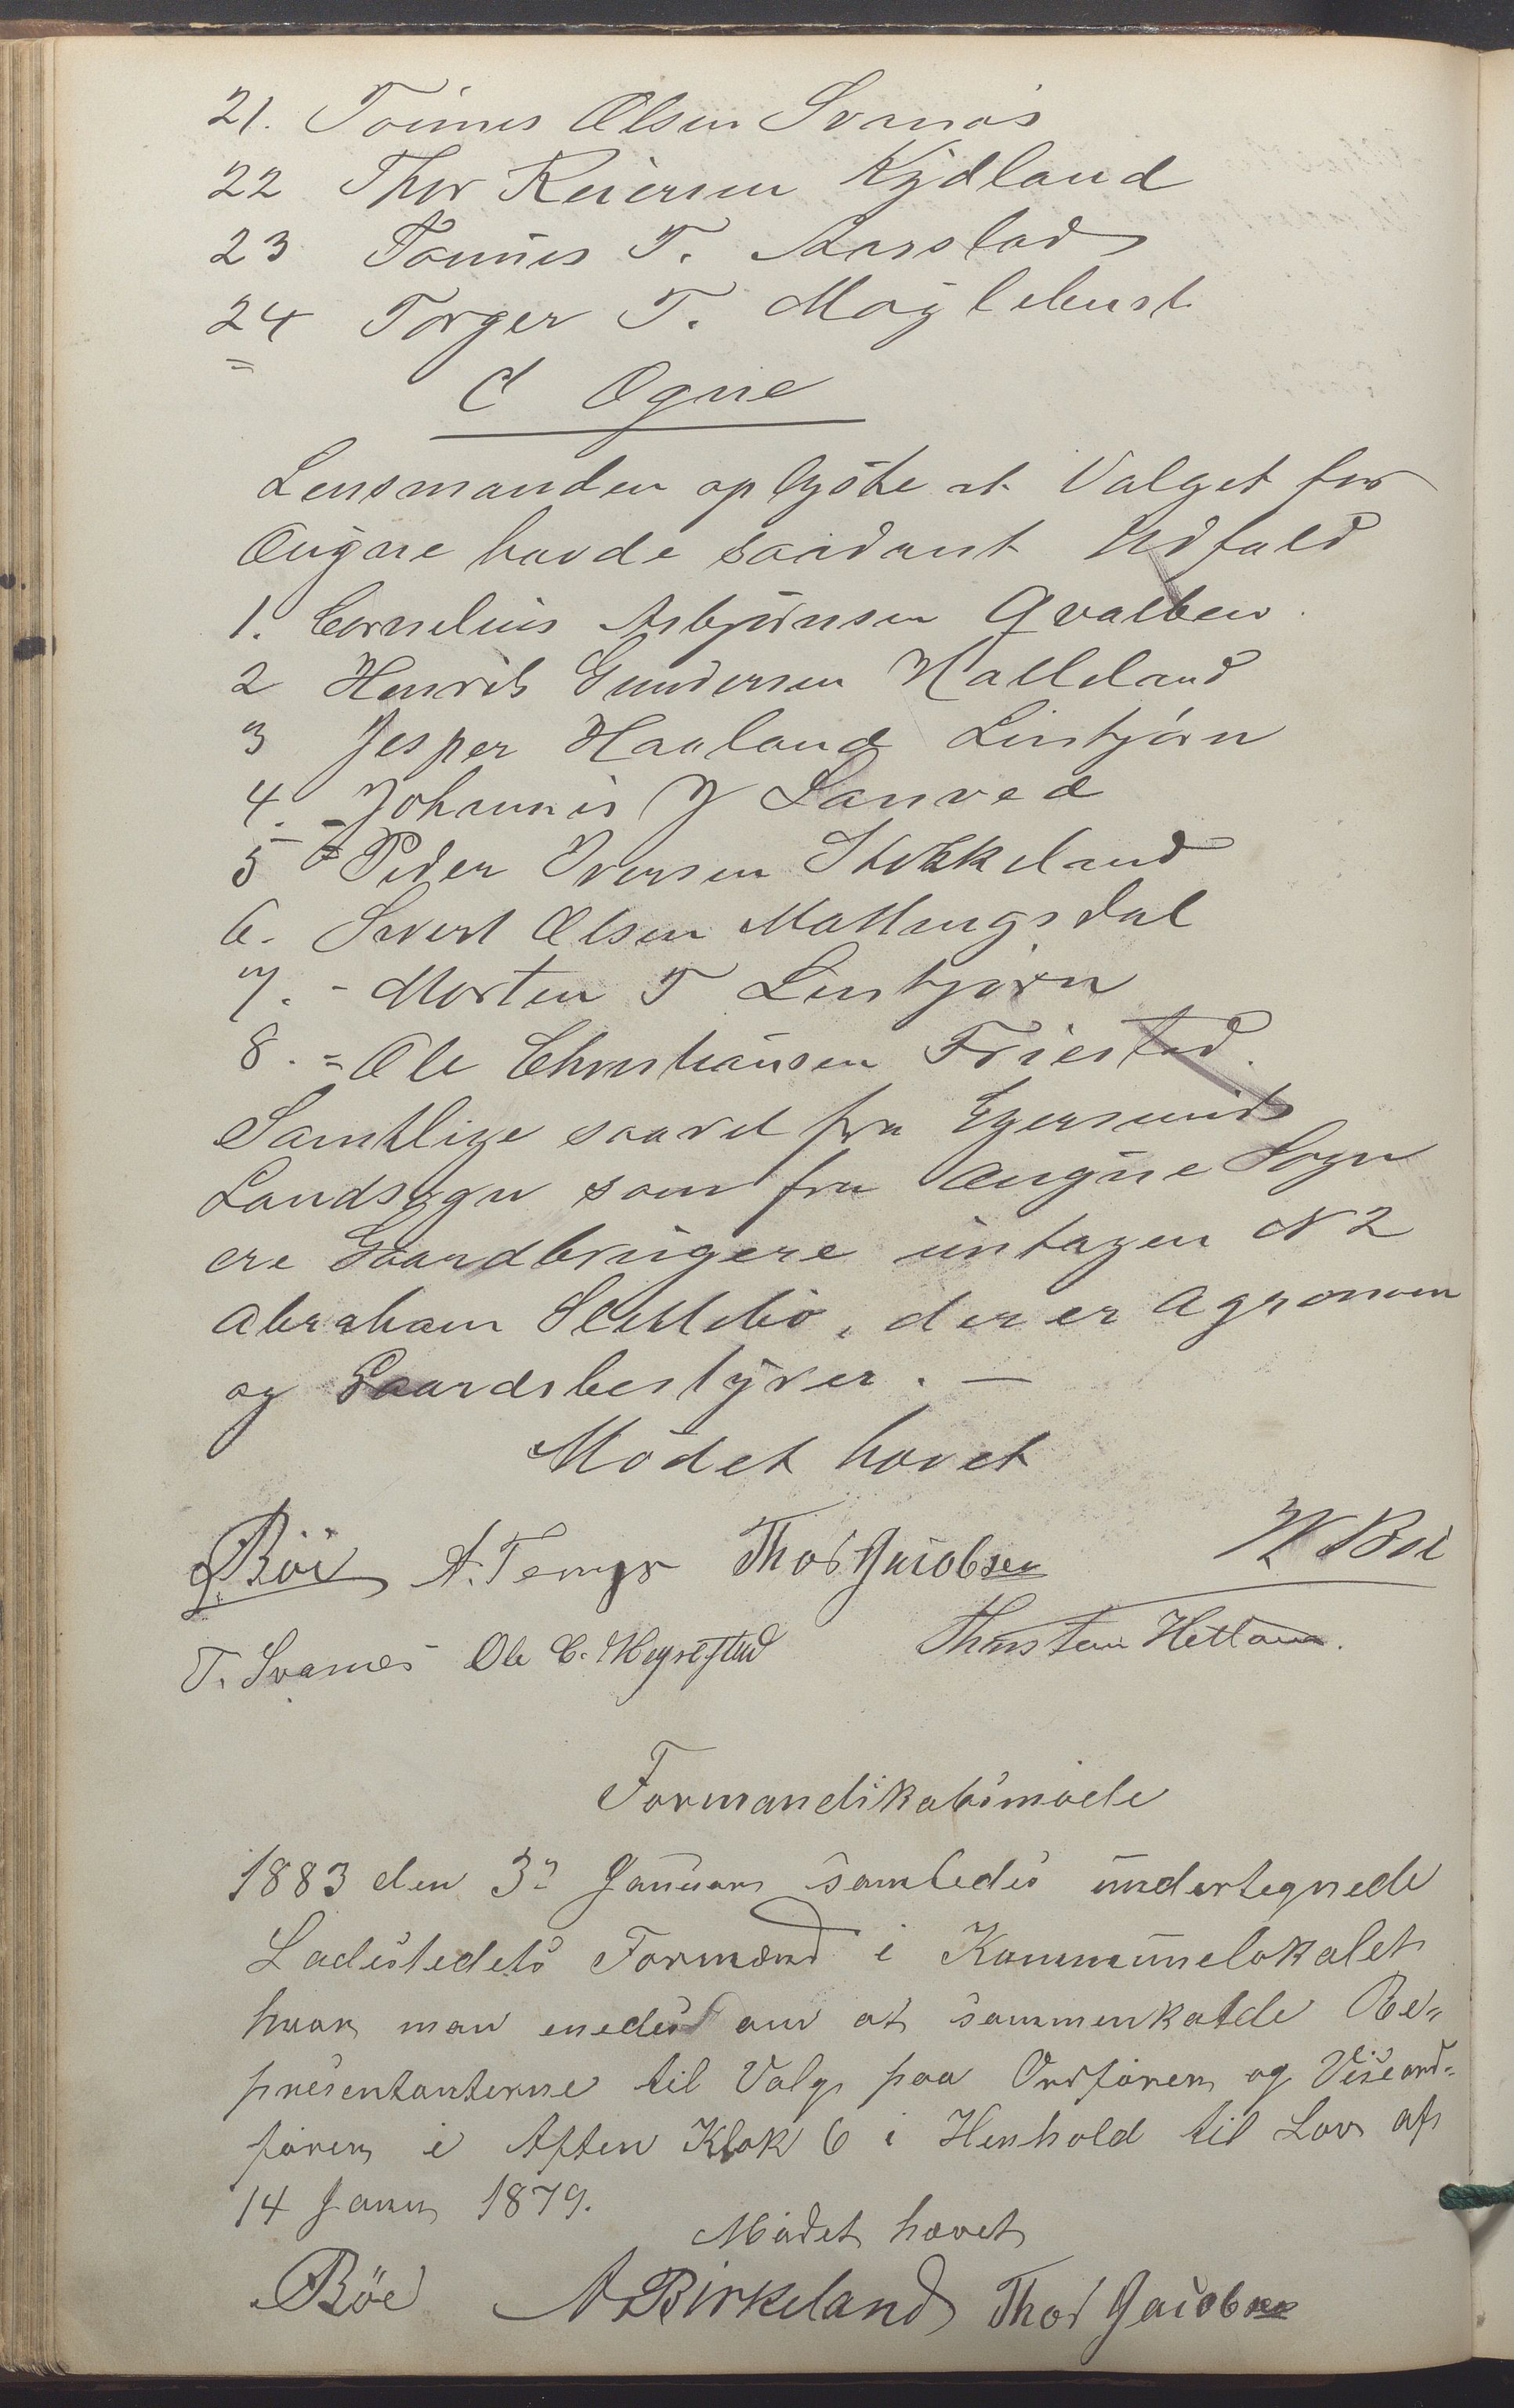 21. Tönnes Olsen Svanæs
22 Thor Reiersen Kydland
23 Tönnes T. Aarstad
24 Torger T. Möglebust
C Ogne
Lensmanden oplyste at Valget for
Ougne havde saadant Udfald
1. Cornelius Asbjörnsen Qvalben
2 Henrik Gundersen Hatleland
3 Jesper Haaland Lintjörn
4. Johannes J Sanved
5 Peder Iversen Stokkeland
6. Sivert Olsen Matlingsdal
7. - Morten T Lintjörn
8. = Ole Christiansen Friestad.
Samtlige saavel fra Egersunds
Landsogn som fra Ougne Sogn
ere Gaardbrugere untagen N 2
Abraham Slettebö, der er Agronom
og Gaardsbestyrer. —
Mödet hævet
Böe A. Thor Jacobsen W Böe
T. Svanes Ole C. Thorstein Hetland.
Formandskabsmöde
1883 den 3die Januar samledes undertegnede
Ladestedets Formænd i Kommunelokalet
hvor man enedes om at sammenkalde Re-
præsentanterne til Valg paa Ordförer og Viseord-
förer i Aften Klok 6 i Henhold til Lov af
14 Janu 1879.
Mödet hævet
Böe A Birkeland Thor Jacobsen